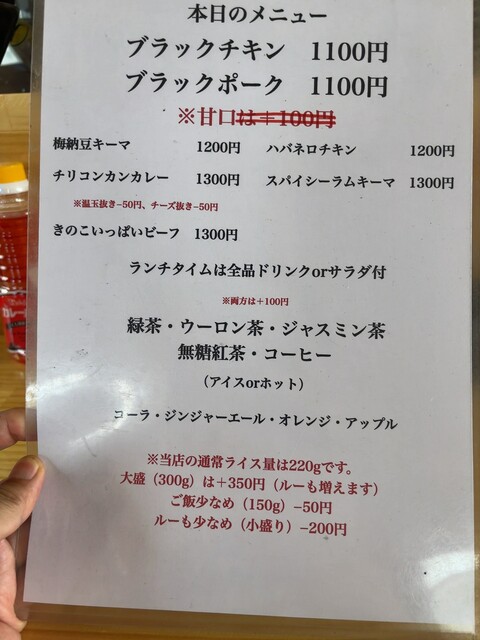 本日のメニュー
ブラックチキン 1100円
ブラックポーク 1100円
※甘口は＋100円
梅納豆キーマ 1200円 ハバネロチキン 1200円
チリコンカンカレー 1300円 スパイシーラムキーマ 1300円
※温玉抜き−50円、チーズ抜き−50円
きのこいっぱいビーフ 1300円
ランチタイムは全品ドリンクorサラダ付
※両方は＋100円
緑茶・ウーロン茶・ジャスミン茶
無糖紅茶・コーヒー
（アイスorホット）
コーラ・ジンジャーエール・オレンジ・アップル
※当店の通常ライス量は220gです。
大盛（300g）は＋350円（ルーも増えます）
ご飯少なめ（150g）−50円
ルーも少なめ（小盛り）−200円